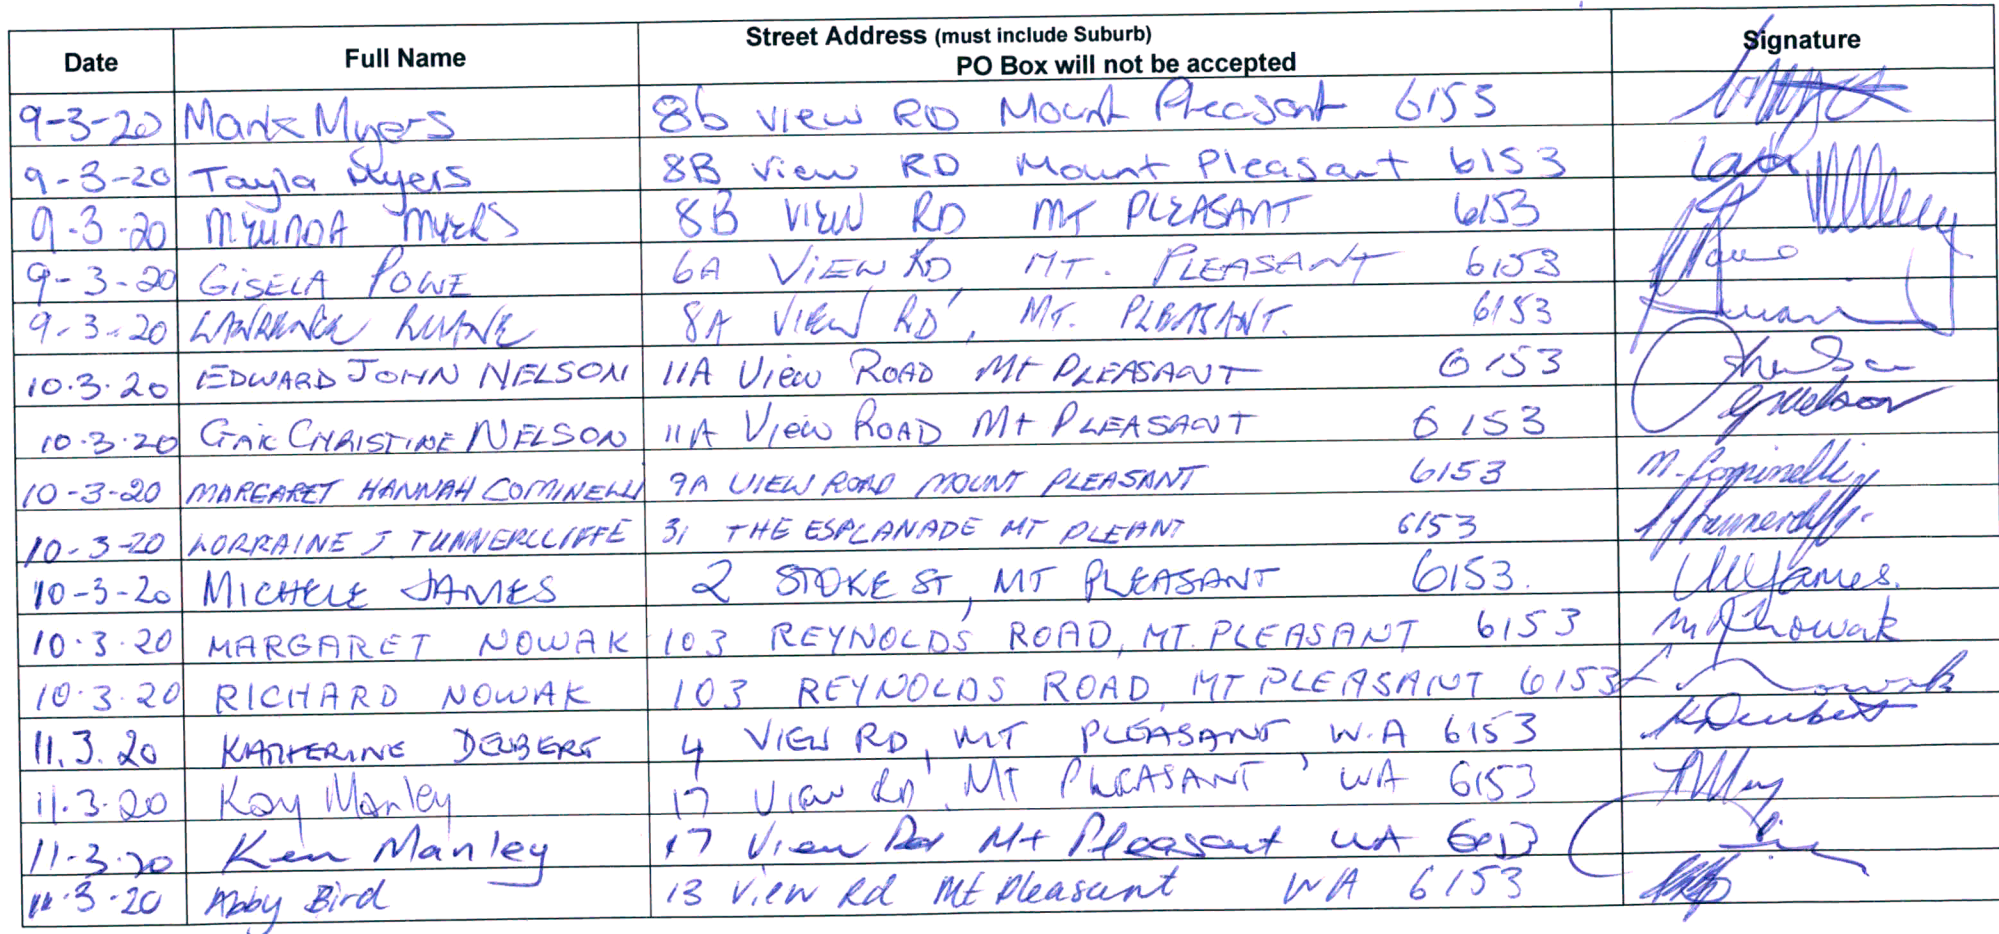 Date Full Name Street Address (must include Suburb) Signature
PO Box will not be accepted
9-3-20 Mark Myers 8b view RD Mount Pleasant 6153
9-3-20 Tayla Myers 8B View RD Mount Pleasant 6153
9-3-20 MELINDA MYERS 8B VIEW RD MT PLEASANT 6153
9-3-20 GISELA POWE 6A VIEW RD, MT. PLEASANT 6153
9-3-20 LAWRENCE RUANE 8A VIEW RD, MT. PLEASANT. 6153
10.3.20 EDWARD JOHN NELSON 11A View ROAD Mt PLEASANT 6153
10.3.20 GAIL CHRISTINE NELSON 11A View ROAD Mt PLEASANT 6153 GNelson
10-3-20 MARGARET HANNAH COMINELLI 9A VIEW ROAD MOUNT PLEASANT 6153 M. Cominelli
10-3-20 LORRAINE J TUNNERCLIFFE 31 THE ESPLANADE MT PLEANT 6153
10-3-20 MICHELE JAMES 2 STOKE ST, MT PLEASANT 6153. James.
10.3.20 MARGARET NOWAK 103 REYNOLDS ROAD, MT. PLEASANT 6153 Nowak
10.3.20 RICHARD NOWAK 103 REYNOLDS ROAD, MT PLEASANT 6153 Nowak
11.3.20 KATHERINE DEUBERT 4 VIEW RD, MT PLEASANT, W.A 6153 KDeubert
11.3.20 Kay Manley 17 View Rd, MT PLEASANT, WA 6153
11-3-20 Ken Manley 17 View Rd Mt Pleasant WA
11.3.20 Abby Bird 13 View Rd Mt Pleasant WA 6153